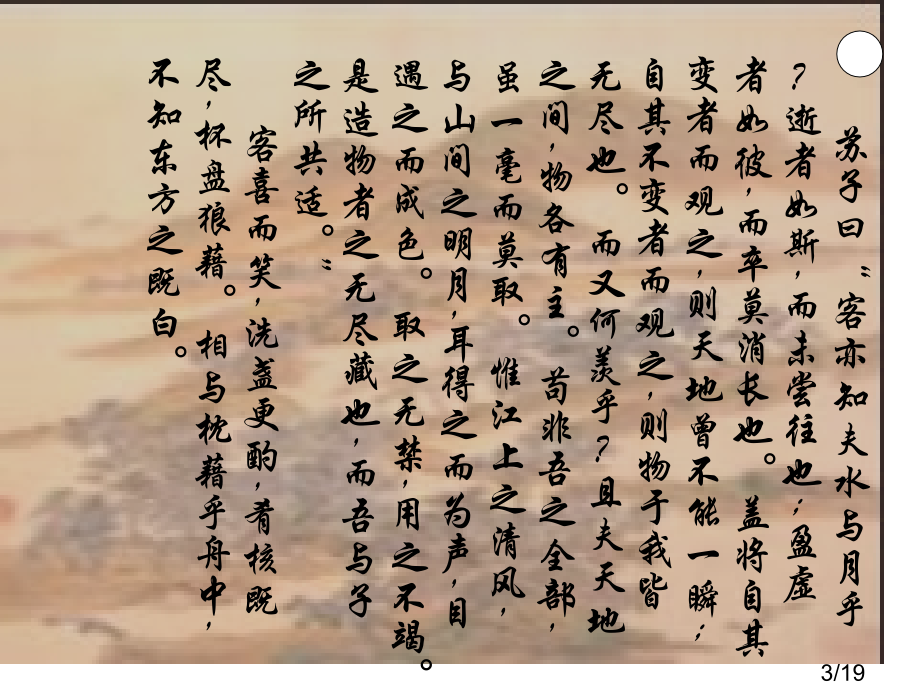 苏子曰〝客亦知夫水与月乎
?逝者如斯,而未尝往也;盈虚
者如彼,而卒莫消长也。盖将自其
变者而观之,则天地曾不能一瞬;
自其不变者而观之,则物于我皆
无尽也。而又何羡乎?且夫天地
之间,物各有主。苟非吾之全部,
虽一毫而莫取。惟江上之清风,
与山间之明月,耳得之而为声,目
遇之而成色。取之无禁,用之不竭。
是造物者之无尽藏也,而吾与子
之所共适。〞
客喜而笑,洗盏更酌,肴核既
尽,杯盘狼藉。相与枕藉乎舟中,
不知东方之既白。
3/19